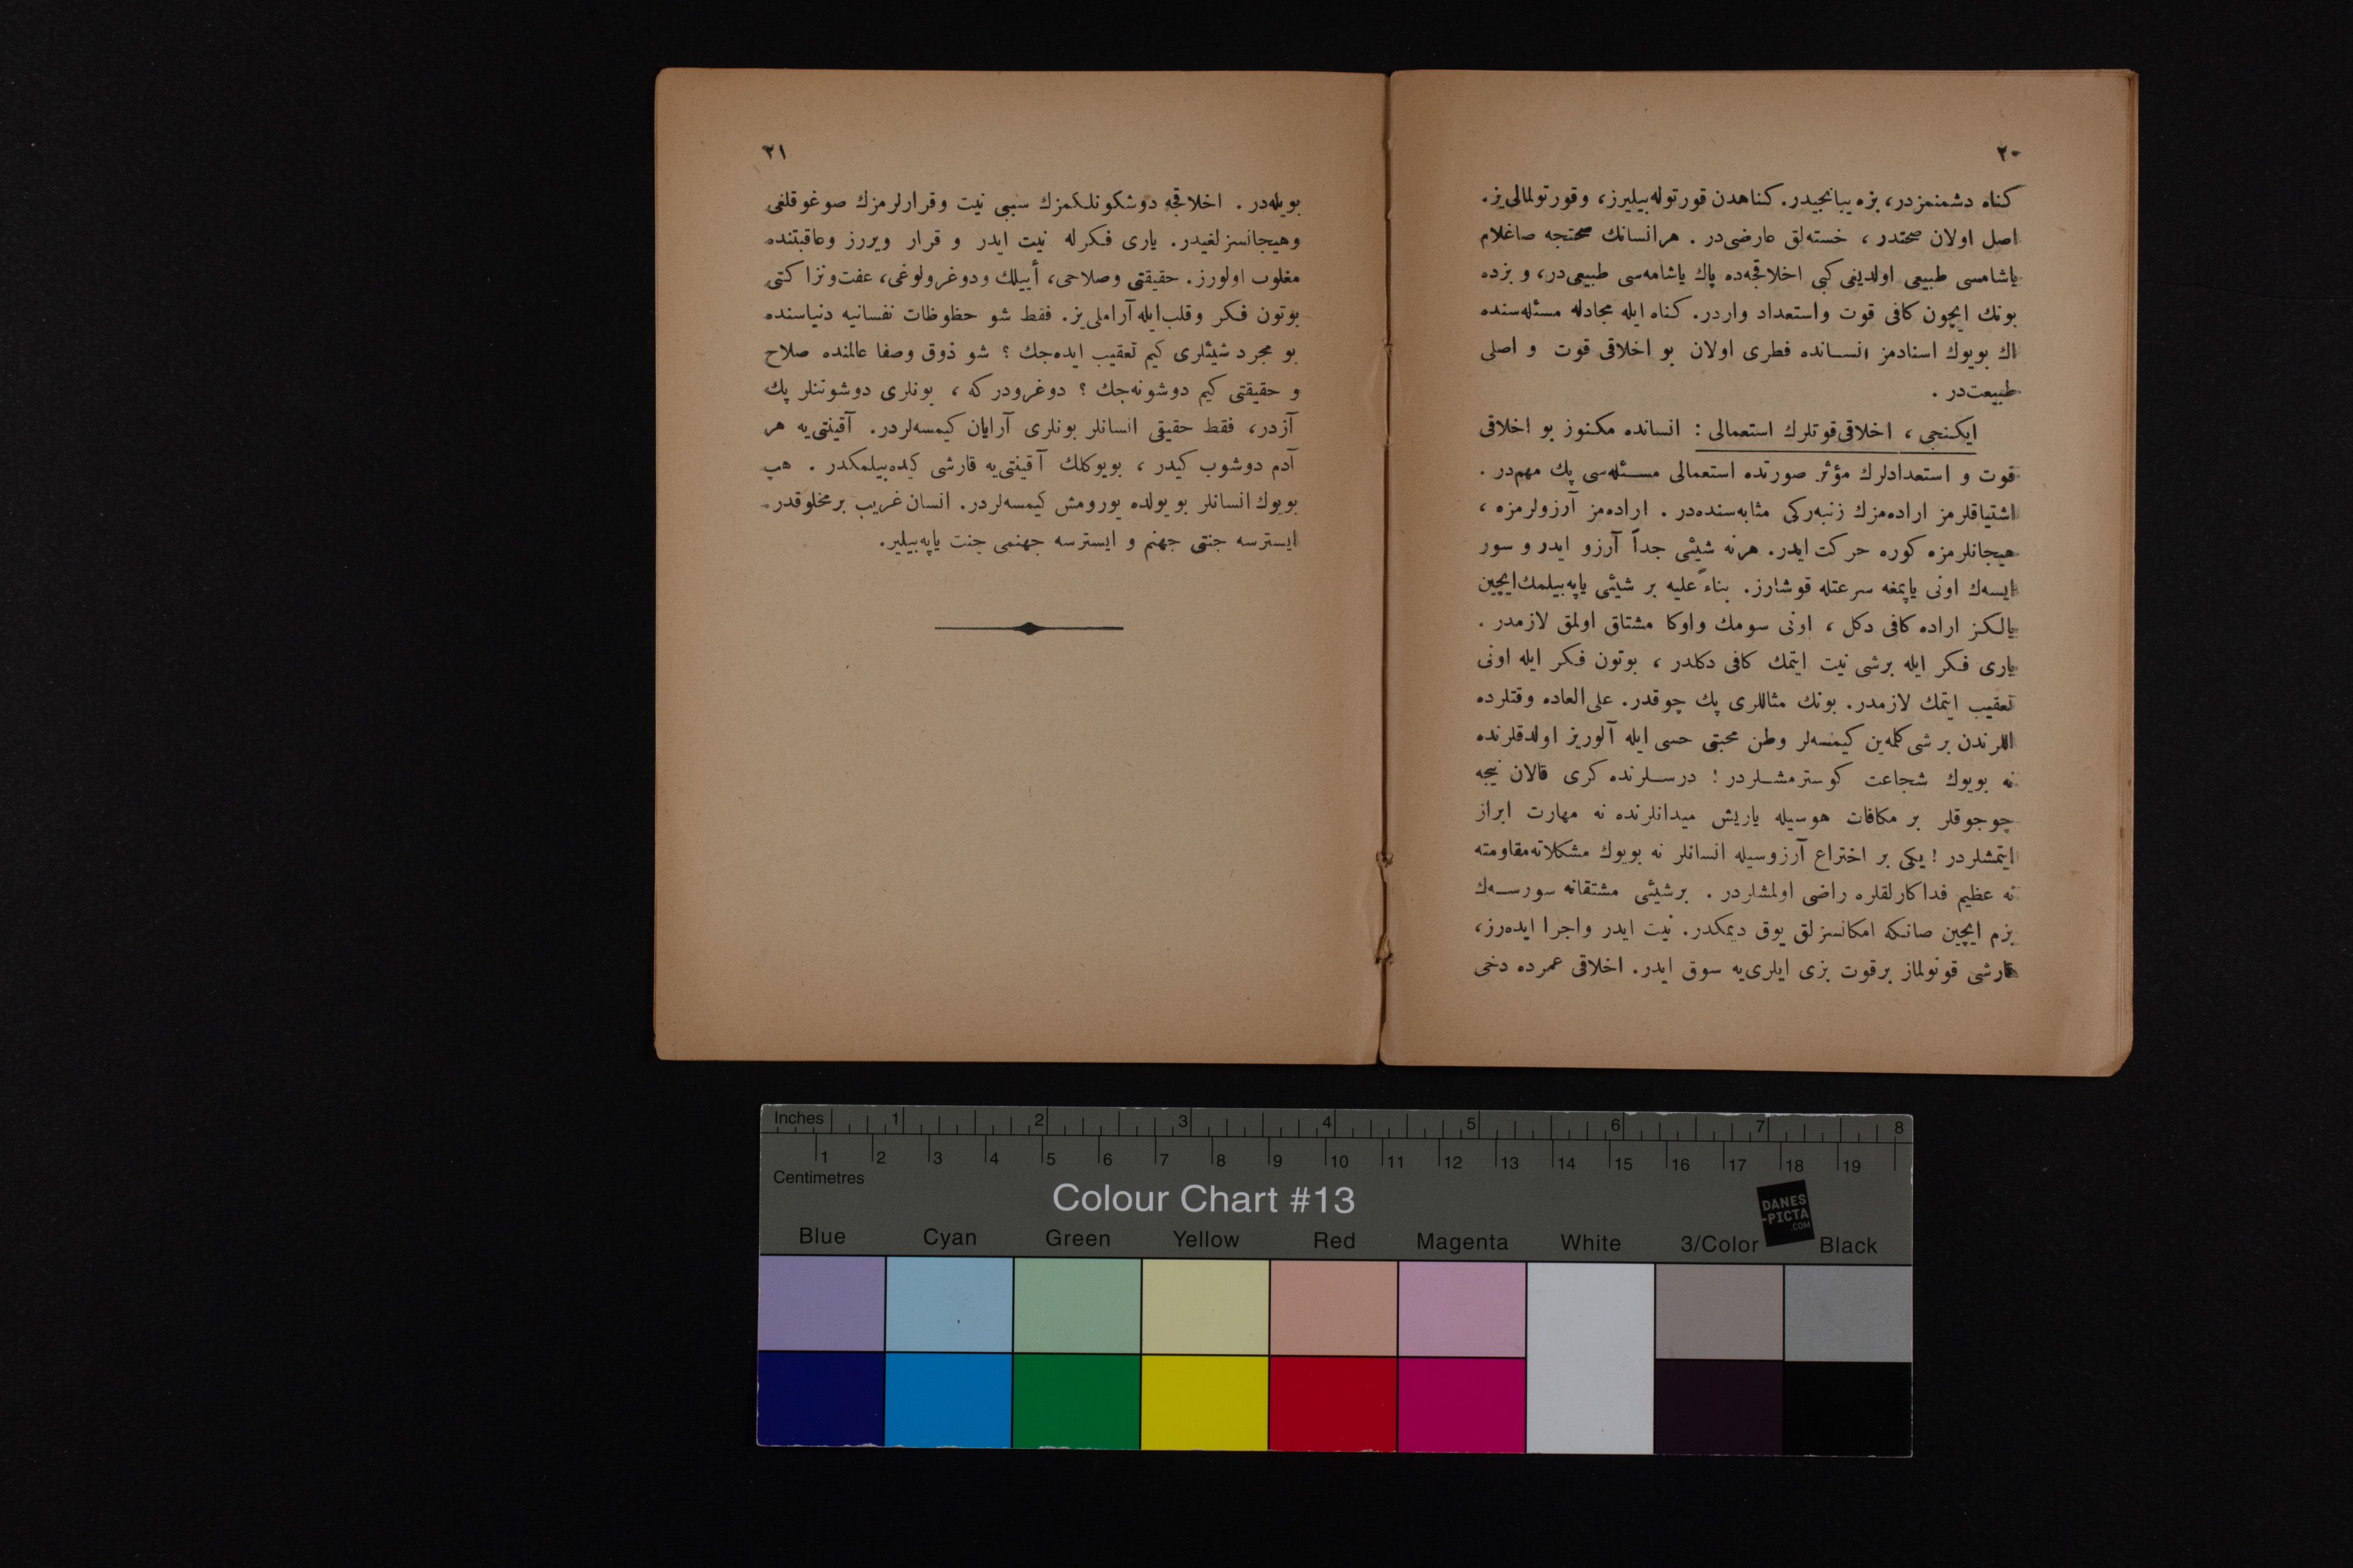 ٢٠
كناه دشمنمزدر، بزه يبانجيدر. كناهدن قورتوله‌بيليرز، وقورتولمالى‌يز.
اصل اولان صحتدر ، خسته‌لق عارضى‌در . هرانسانك صحتجه صاغلام
ياشامسى طبيعى اولديغى كبى اخلاقجه‌ده پاك ياشامه‌سى طبيعى‌در، و بزده
بونك ايچون كافى قوت واستعداد واردر. كناه ايله مجادله مسئله‌سنده
اك بويوك اسنادمز انسانده فطرى اولان بو اخلاقى قوت و اصلى
طبيعت‌در .
ايكنجى ، اخلاقى‌قوتلرك استعمالى : انسانده مكنوز بو اخلاقى
قوت و استعدادلرك مؤثر صورتده استعمالى مسئله‌سى پك مهم‌در .
اشتياقلرمز اراده‌مزك زنبه‌ركى مثابه‌سنده‌در . اراده‌مز آرزولرمزه ،
هيجانلرمزه كوره حركت ايدر. هرنه شيئى جداً آرزو ايدر و سور
ايسه‌ك اونى ياپمغه سرعتله قوشارز. بناءً عليه بر شيئى ياپه‌بيلمك‌ايچين
يالكز اراده كافى دكل ، اونى سومك واوكا مشتاق اولمق لازمدر .
يارى فكر ايله برشى نيت ايتمك كافى دكلدر ، بوتون فكر ايله اونى
تعقيب ايتمك لازمدر. بونك مثاللرى پك چوقدر. على‌العاده وقتلرده
اللرندن بر شى كلمه‌ين كيمسه‌لر وطن محبتى حسى ايله آلوريز اولدقلرنده
نه بويوك شجاعت كوسترمشلردر ! درسلرنده كرى قالان نيجه
چوجوقلر بر مكافات هوسيله ياريش ميدانلرنده نه مهارت ابراز
ايتمشلردر ! يكى بر اختراع آرزوسيله انسانلر نه بويوك مشكلاته‌مقاومته
نه عظيم فداكارلقلره راضى اولمشلردر . برشيئى مشتقانه سورسه‌ك
بزم ايچين صانكه امكانسزلق يوق ديمكدر. نيت ايدر واجرا ايده‌رز،
قارشى قونولماز برقوت بزى ايلرى‌يه سوق ايدر. اخلاقى عمرده دخى
٢١
بويله‌در . اخلاقجه دوشكونلكمزك سببى نيت وقرارلرمزك صوغوقلغى
وهيجانسزلغيدر. يارى فكرله نيت ايدر و قرار ويررز وعاقبتنده
مغلوب اولورز. حقيقتى وصلاحى، أييلك ودوغرولوغى، عفت‌ونزاكتى
بوتون فكر وقلب‌ايله آراملى‌يز. فقط شو حظوظات نفسانيه دنياسنده
بو مجرد شيئلرى كيم تعقيب ايده‌جك ؟ شو ذوق وصفا عالمنده صلاح
و حقيقتى كيم دوشونه‌جك ؟ دوغرودركه ، بونلرى دوشوننلر پك
آزدر، فقط حقيقى انسانلر بونلرى آرايان كيمسه‌لردر. آقينتى‌يه هر
آدم دوشوب كيدر ، بويوكلك آقينتى‌يه قارشى كيده‌بيلمكدر . هپ
بويوك انسانلر بو يولده يورومش كيمسه‌لردر. انسان غريب برمخلوقدر.
ايسترسه جنتى جهنم و ايسترسه جهنمى جنت ياپه‌بيلير.
Inches 1 2 3 4 5 6 7 8
1 2 3 4 5 6 7 8 9 10 11 12 13 14 15 16 17 18 19
Centimetres
Colour Chart #13
DANES
-PICTA
.COM
Blue Cyan Green Yellow Red Magenta White 3/Color Black